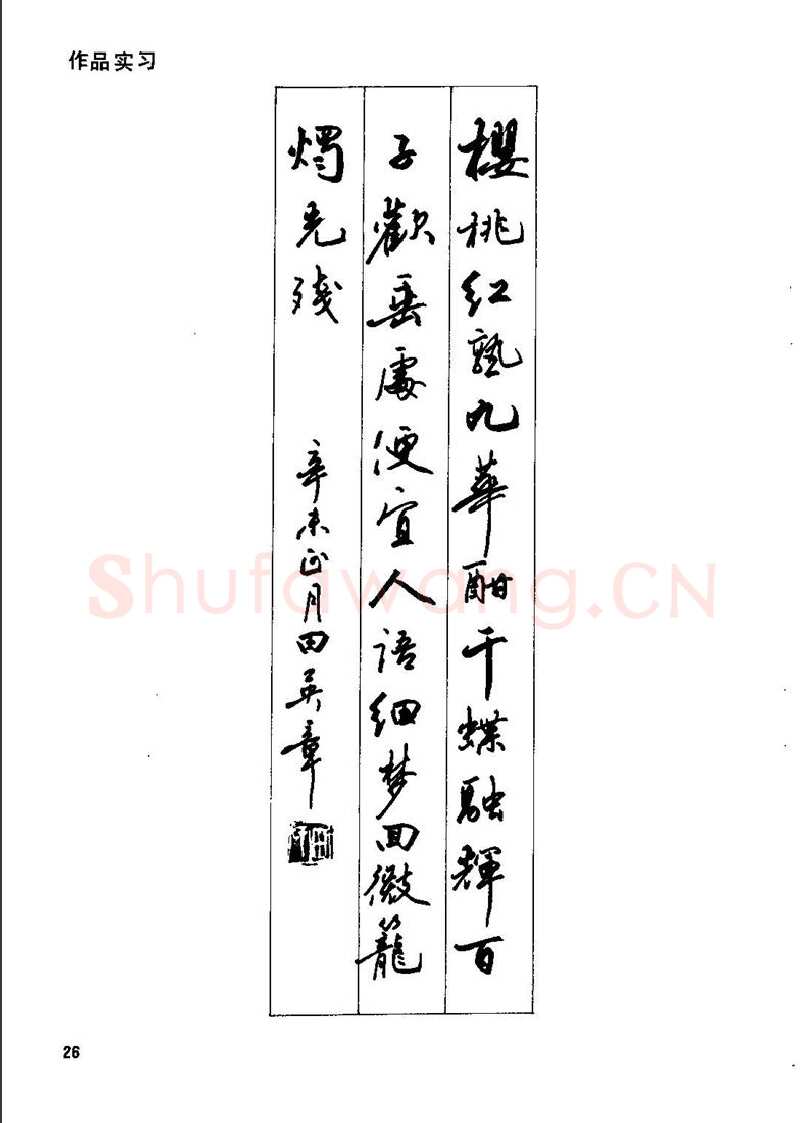 作品实习
櫻桃红熟九華酣千蝶融輝百
子歡垂處便宜人語细梦回微籠
燭光残
辛未正月田英章
Shufawang.CN
26